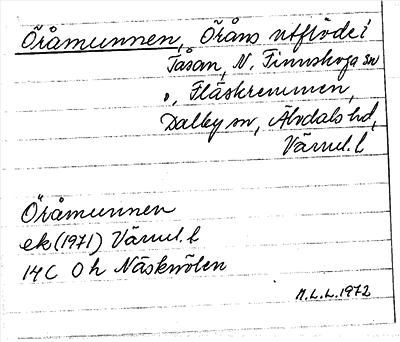 Öråmunnen, Öråns utflöde i
Tåsan, N. Finnskoga sn
o, Fläskremmen,
Dalby sn, Älvdals hd,
Värml. l
Öråmunnen
ek (1971) Värml. l
14 C 0 h Näsknölen
M.L.L. 1972